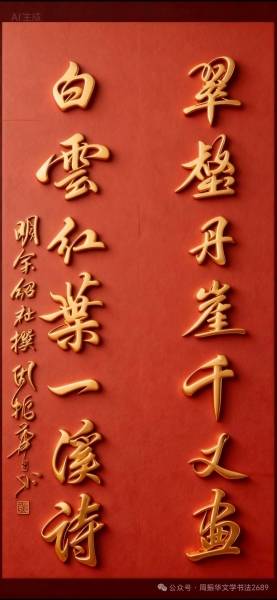 AI生成
翠壑丹崖千丈畫
白雲红葉一溪詩
明余紹祉撰 周振華书
公众号 · 周振华文学书法2689